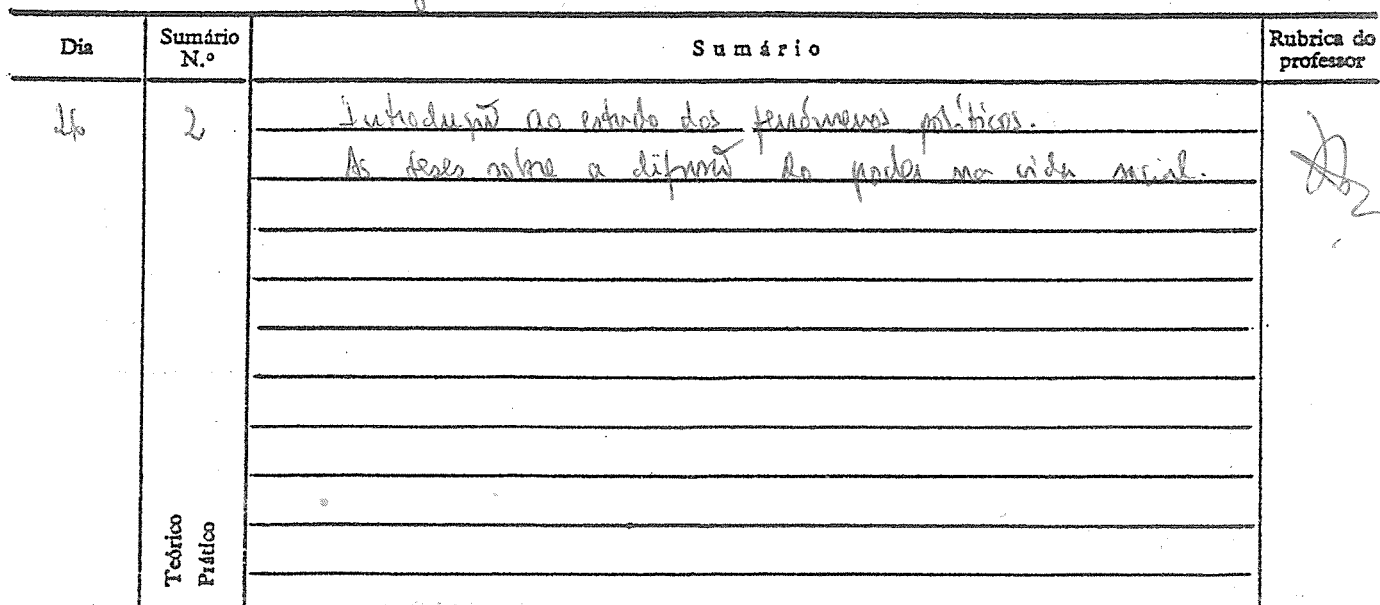 Dia Sumário N.º Sumário Rubrica do professor
2 Introdução ao estudo dos fenómenos políticos.
As teses sobre a difusão do poder na vida social.
Teórico
Prático